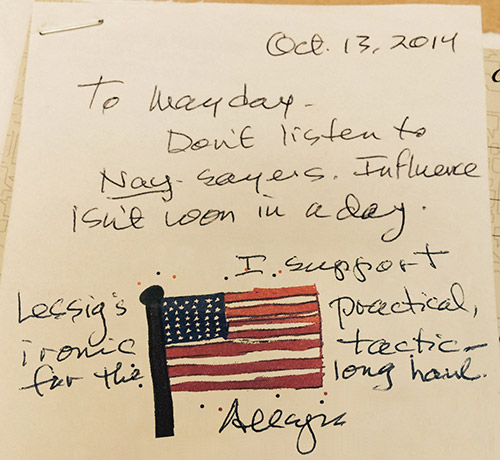 Oct. 13, 2014
To Mayday -
Don't listen to
Nay-sayers. Influence
isn't won in a day.
I support
Lessig's practical,
ironic tactic -
for the long haul.